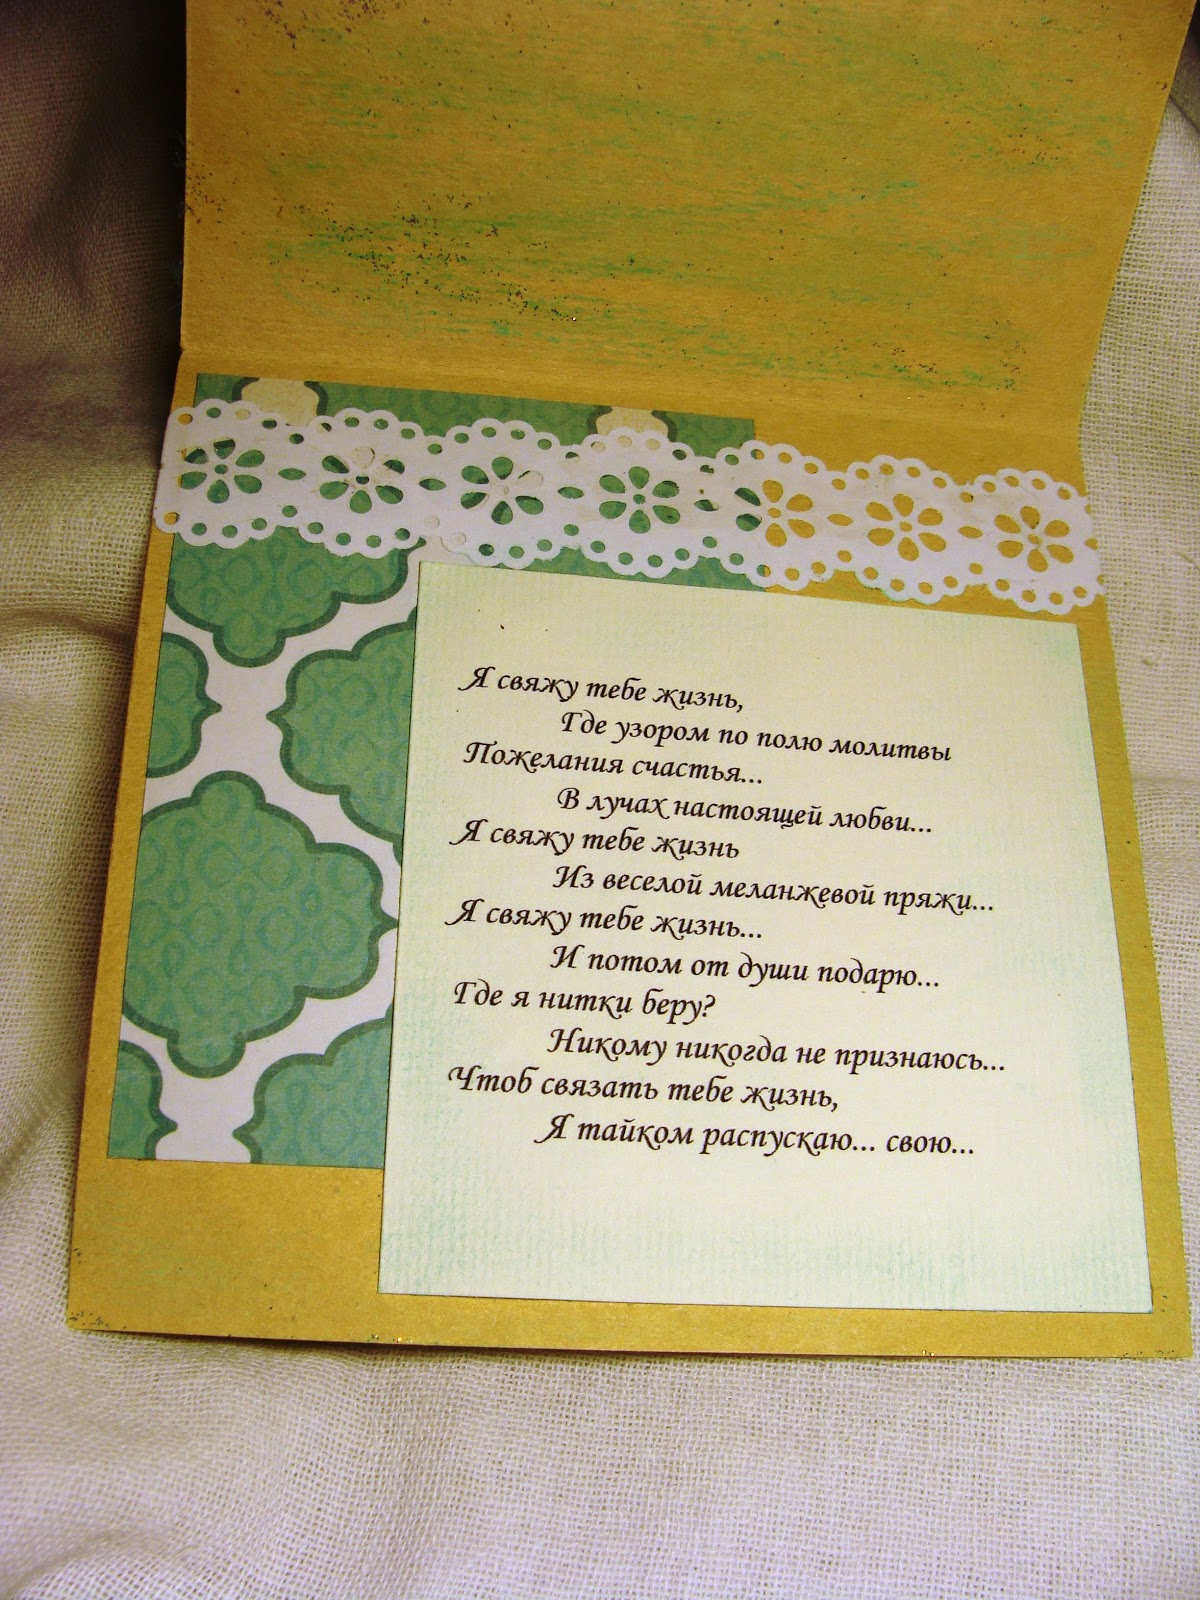 Я свяжу тебе жизнь,
Где узором по полю молитвы
Пожелания счастья...
В лучах настоящей любви...
Я свяжу тебе жизнь
Из веселой меланжевой пряжи...
Я свяжу тебе жизнь...
И потом от души подарю...
Где я нитки беру?
Никому никогда не признаюсь...
Чтоб связать тебе жизнь,
Я тайком распускаю... свою...